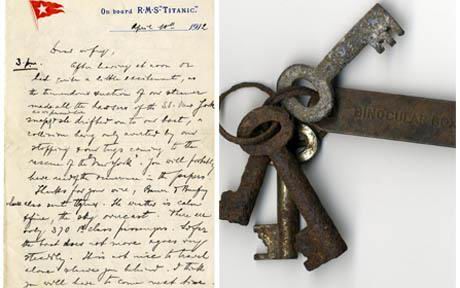 On board R.M.S "TITANIC."
April 10th 1912
Dear wifey,
3. pm. After leaving at noon or
had quite a little excitement, as
the tremendous suction of our steamer
made all the hawsers of the SS. New York
snap & she drifted on to our boat, a
collision being only averted by our
stopping & our tugs coming to the
rescue of the "New York". You will probably
have read of the in the papers
Thanks for your wire,
sent theirs. The weather is calm
the sky overcast. There are
only 370 1st class passengers. So far
the boat does not move & goes very
steadily. It is not nice to travel
alone & leave you behind. I think
you will have to come next time
BINOCULAR BOX